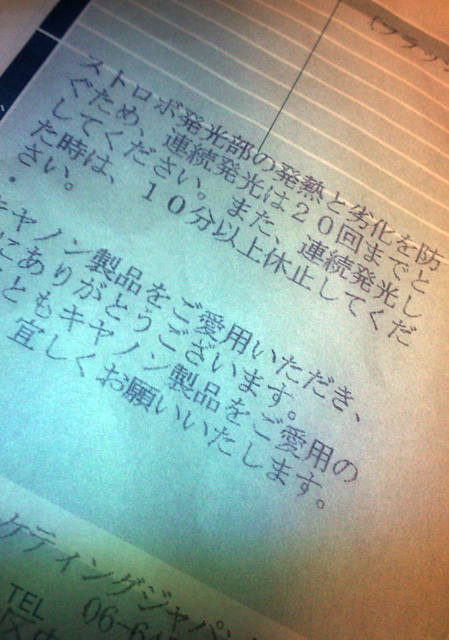 (フラッシ
ストロボ発光部の発熱と劣化を防
ぐため、連続発光は20回までと
してください。また、連続発光し
た時は、10分以上休止してくだ
さい。
キヤノン製品をご愛用いただき、
にありがとうございます。
ともキヤノン製品をご愛用の
宜しくお願いいたします。
ケティングジャパン
TEL 06-6